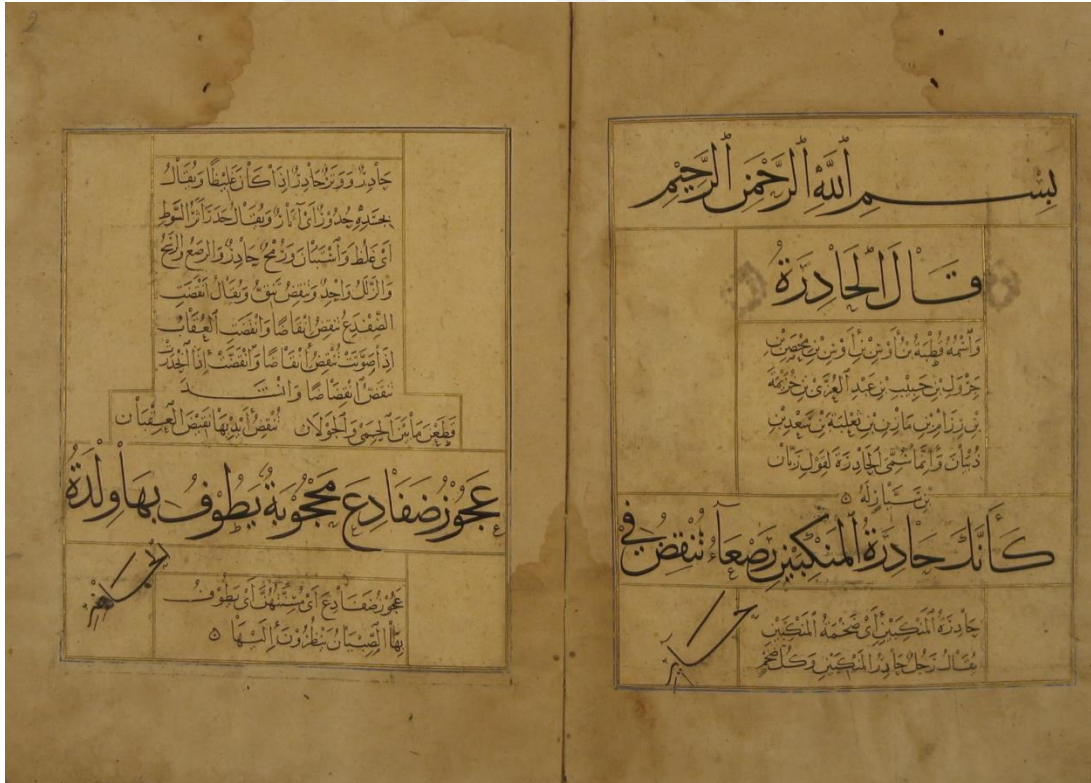 بسم ٱلله ٱلرحمن ٱلرحيم
قال ٱلحادرة
وٱسمه قطبة بن أوس بن أوس بن محصن بن
جرول بن حبيب بن عبد ٱلعزى بن خزيمة
بن رزام بن مازن بن ثعلبة بن سعد بن
ذبيان وإنما سمى الحادرة لقول زبان
بن سيار له
كأنك حادرة ٱلمنكبين رصعاء تنقض في
حائر
حادرة ٱلمنكبين أي ضخمة ٱلمنكبين
يقال رجل حادر المنكبين وكل ضخم
حادر ووتر حادر إذا كان غليظا ويقال
بجلده حدور أي آثار ويقال حدر أثر السوط
أي غلظ وٱستبان ورمح حادر والرصع والرسح
والزلل واحد وتنقض تنق ويقال أنقضت
الضفدع تنقض إنقاضا وأنقضت ٱلعقاب
إذا صوتت تنقض إنقاضا وٱنقضت إذا ٱنحدرت
تنقض ٱنقضاضا وأنشد
قطعن ما بين ٱلحسى وٱلجولان تنقض أيديها نقيض ٱلعقبان
عجوز ضفادع محجوبة يطوف بها ولدة
ٱلحاضر
عجوز ضفادع أي مسنتهن أي يطوف
بها ٱلصبيان ينظرون إليها